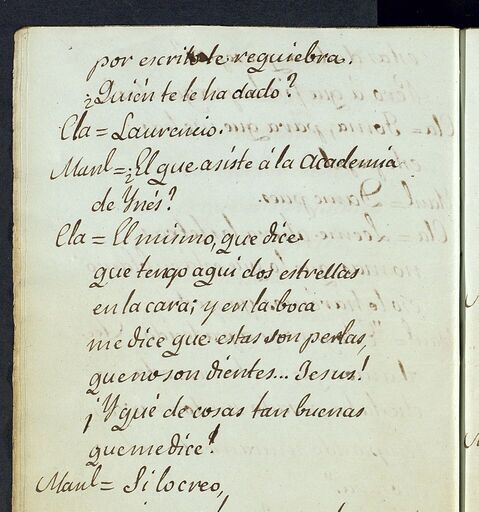 por escrito te requiebra.
¿Quién te le ha dado?
Cla = Laurencio.
Manl = ¿El que asiste á la academia
de Ynés?
Cla = El mismo, que dice
que tengo aqui dos estrellas
en la cara; y en la boca
me dice que estas son perlas,
que no son dientes... Jesus!
¡Y qué de cosas tan buenas
que me dice!
Manl = Si lo creo,